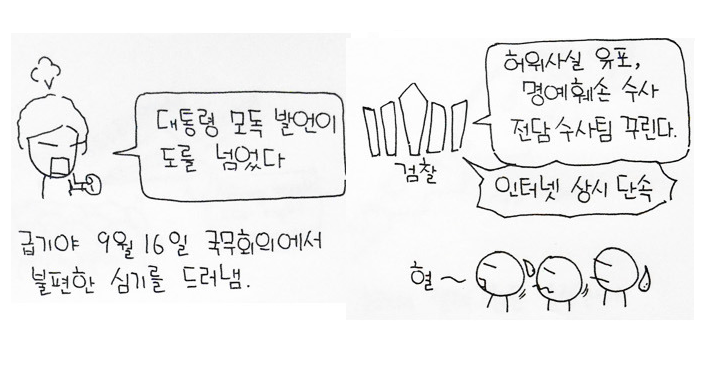 대통령 모독 발언이
도를 넘었다
급기야 9월 16일 국무회의에서
불편한 심기를 드러냄.
허위사실 유포,
명예훼손 수사
전담수사팀 꾸린다.
검찰
인터넷 상시 단속
헐~